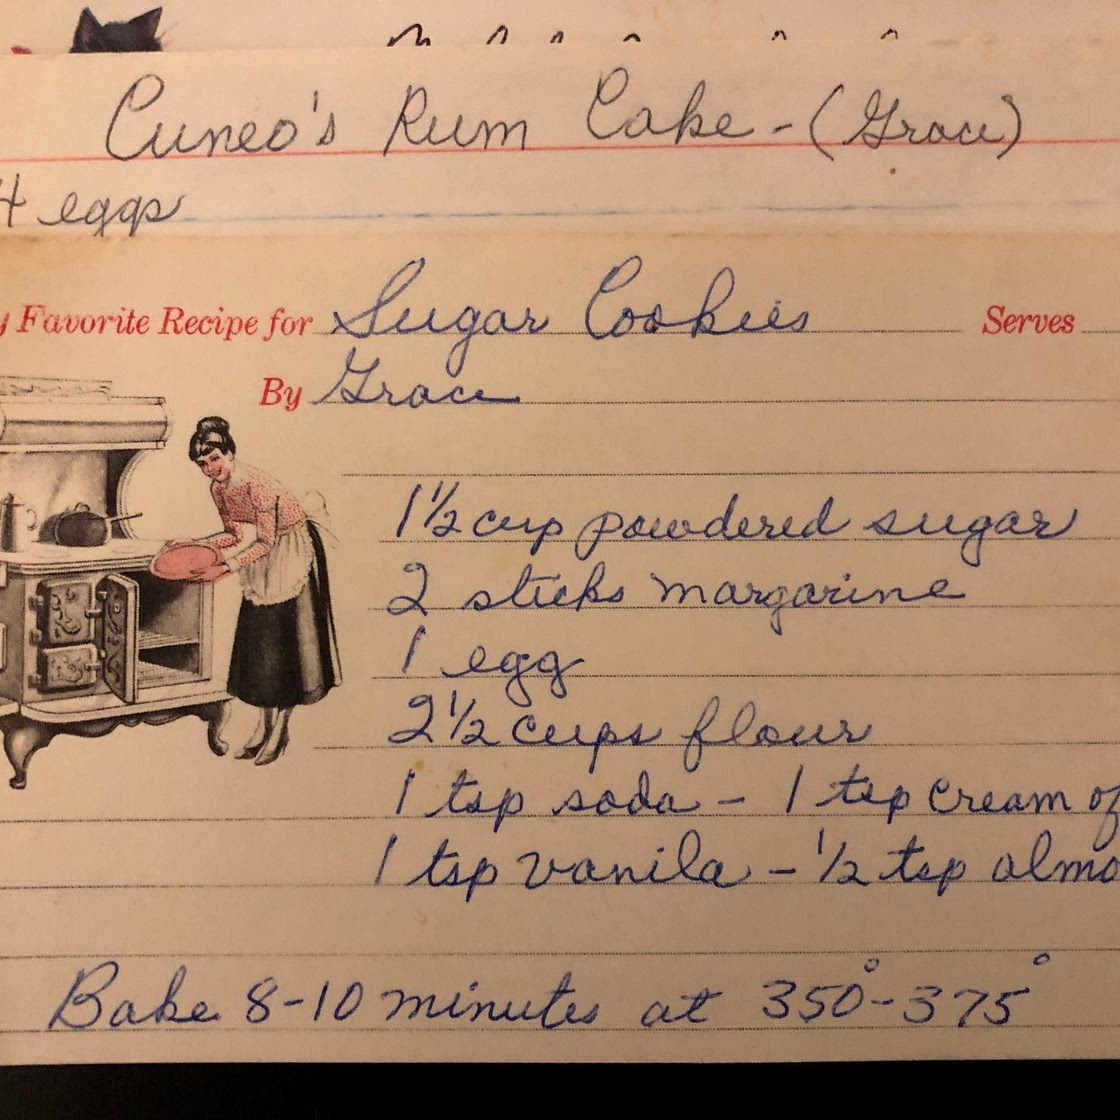 Cuneo's Rum Cake - (Grace)
4 eggs
Favorite Recipe for Sugar Cookies Serves
By Grace
1 1/2 cup powdered sugar
2 sticks margarine
1 egg
2 1/2 cups flour
1 tsp soda - 1 tsp cream of
1 tsp vanila - 1/2 tsp almo
Bake 8-10 minutes at 350°-375°